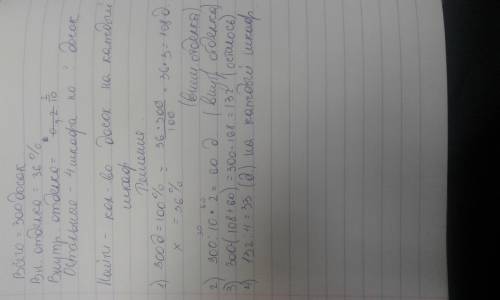 Всего = 300 досок
Вн. отделка = 36 %
Внутр. отделка =
Остальные - 4 шкафа по ? досок
Найти - кол-во досок на каждый
шкаф
Решение.
1) 300 д = 100% = 36·300/100 = 36·3 = 108 д.
х = 36% (внеш отделка)
2) 300:10·2 = 60 д (внутр. отделка)
3) 300-(108+60) = 300-168 = 132 (осталось)
4) 132:4 = 33 (д) на каждый шкаф.